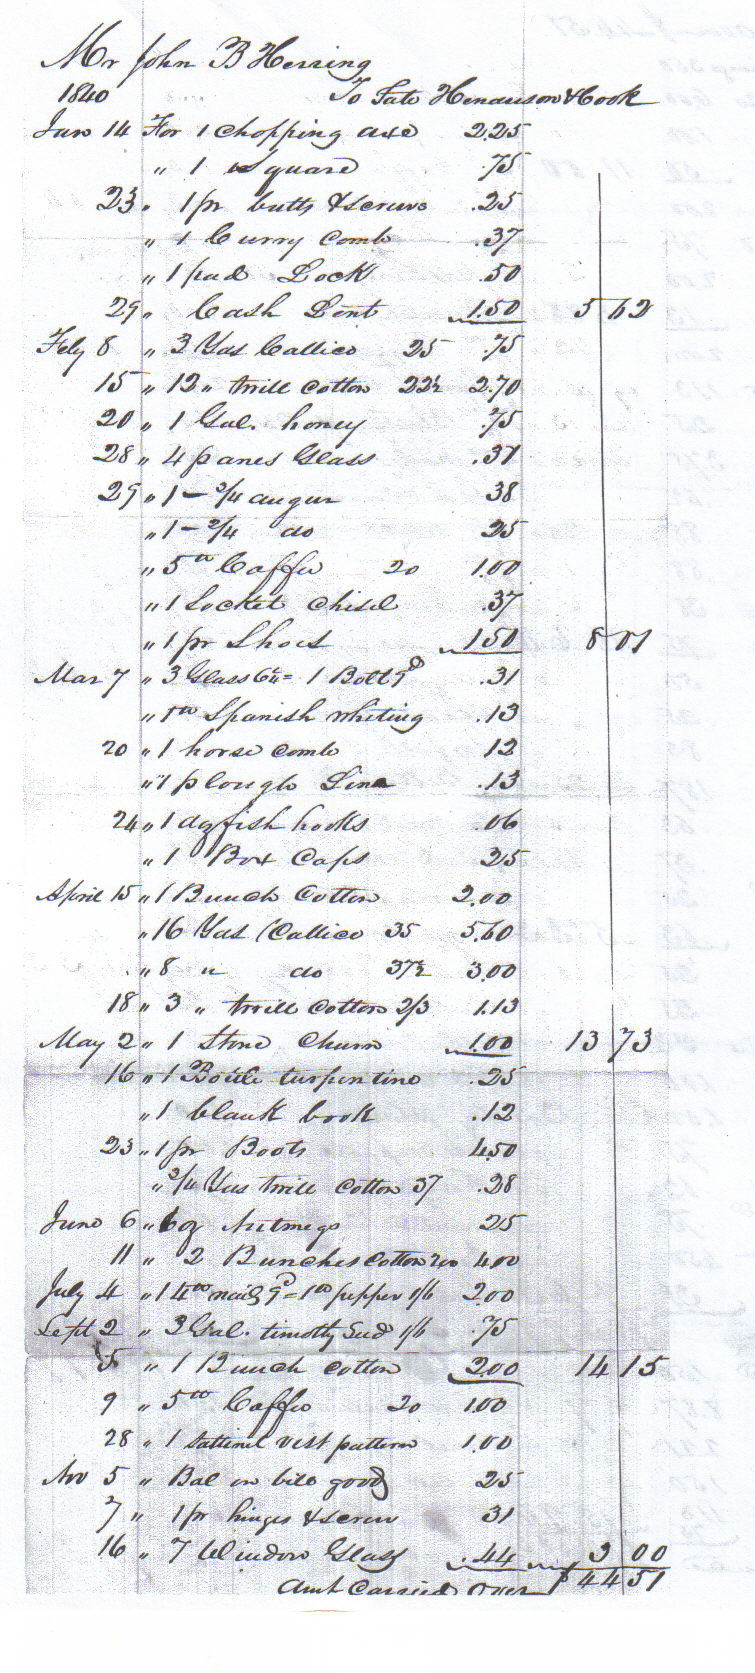 Mr John B Herring
1840 To Tate Henderson & Cook
Jan 14 For 1 Chopping axe 2.25
" 1 Square .75
23 " 1 pr butts & screws .25
" 1 Curry Comb .37
" 1 pad Lock .50
29 " Cash Lent 1.50 5 62
Feby 8 " 3 Yds Callico 25 .75
15 " 12 " twill Cotton 22½ 2.70
20 " 1 Gal. honey .75
28 " 4 panes Glass .37
29 " 1 - 3/4 augur 38
" 1 - 2/4 do 25
" 5 lb Coffee 20 1.00
" 1 Socket Chisel .37
" 1 pr Shoes 1.50 8 07
Mar 7 " 3 Glass = 1 Bolt 9d .31
" 1 lb Spanish Whiting .13
20 " 1 horse Comb 12
" 1 plough Line .13
24 " 1 dz fish hooks .06
" 1 Box Caps 25
April 15 " 1 Bunch Cotton 2.00
" 16 Yds Callico 35 5.60
" 8 " do 37½ 3.00
18 " 3 " twill Cotton 2/3 1.13
May 2 " 1 Stone Churn 1.00 13 73
16 " 1 Bottle turpentine .25
" 1 blank book .12
23 " 1 pr Boots 4.50
" 3/4 Yds twill Cotton 37 .28
June 6 " Nutmegs 25
11 " 2 Bunches Cotton 200 4.00
July 4 " 14 lb nails 9d = 1 lb pepper 1/6 2.00
Sept 2 " 3 Gal. timothy Seed 1/6 .75
5 " 1 Bunch Cotton 2.00 14 15
9 " 5 lb Coffee 20 1.00
28 " 1 Sattinet vest pattern 1.00
Nov 5 " Bal on bill goods 25
7 " 1 pr hinges & screws 31
16 " 7 Window Glass .44 3 00
Amt Carried over $44 57